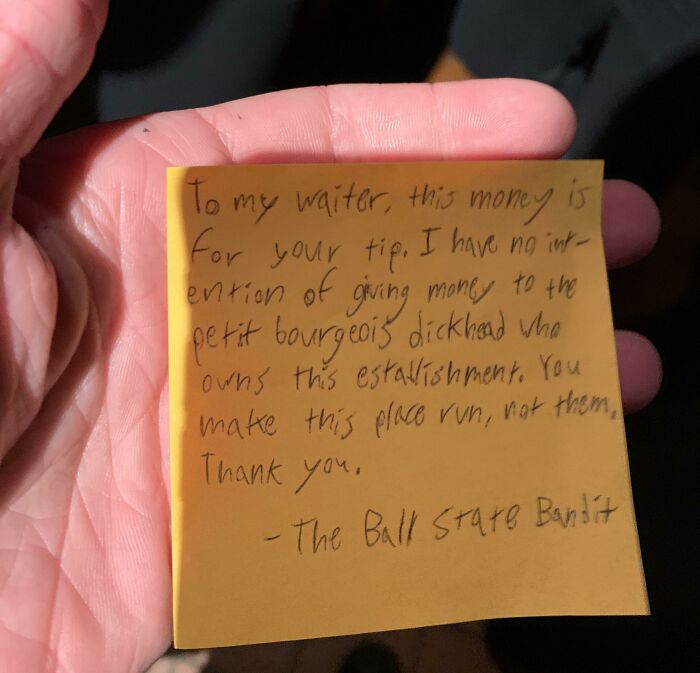 To my waiter, this money is
for your tip. I have no int-
ention of giving money to the
petit bourgeois dickhead who
owns this establishment. You
make this place run, not them.
Thank you.
- The Ball State Bandit